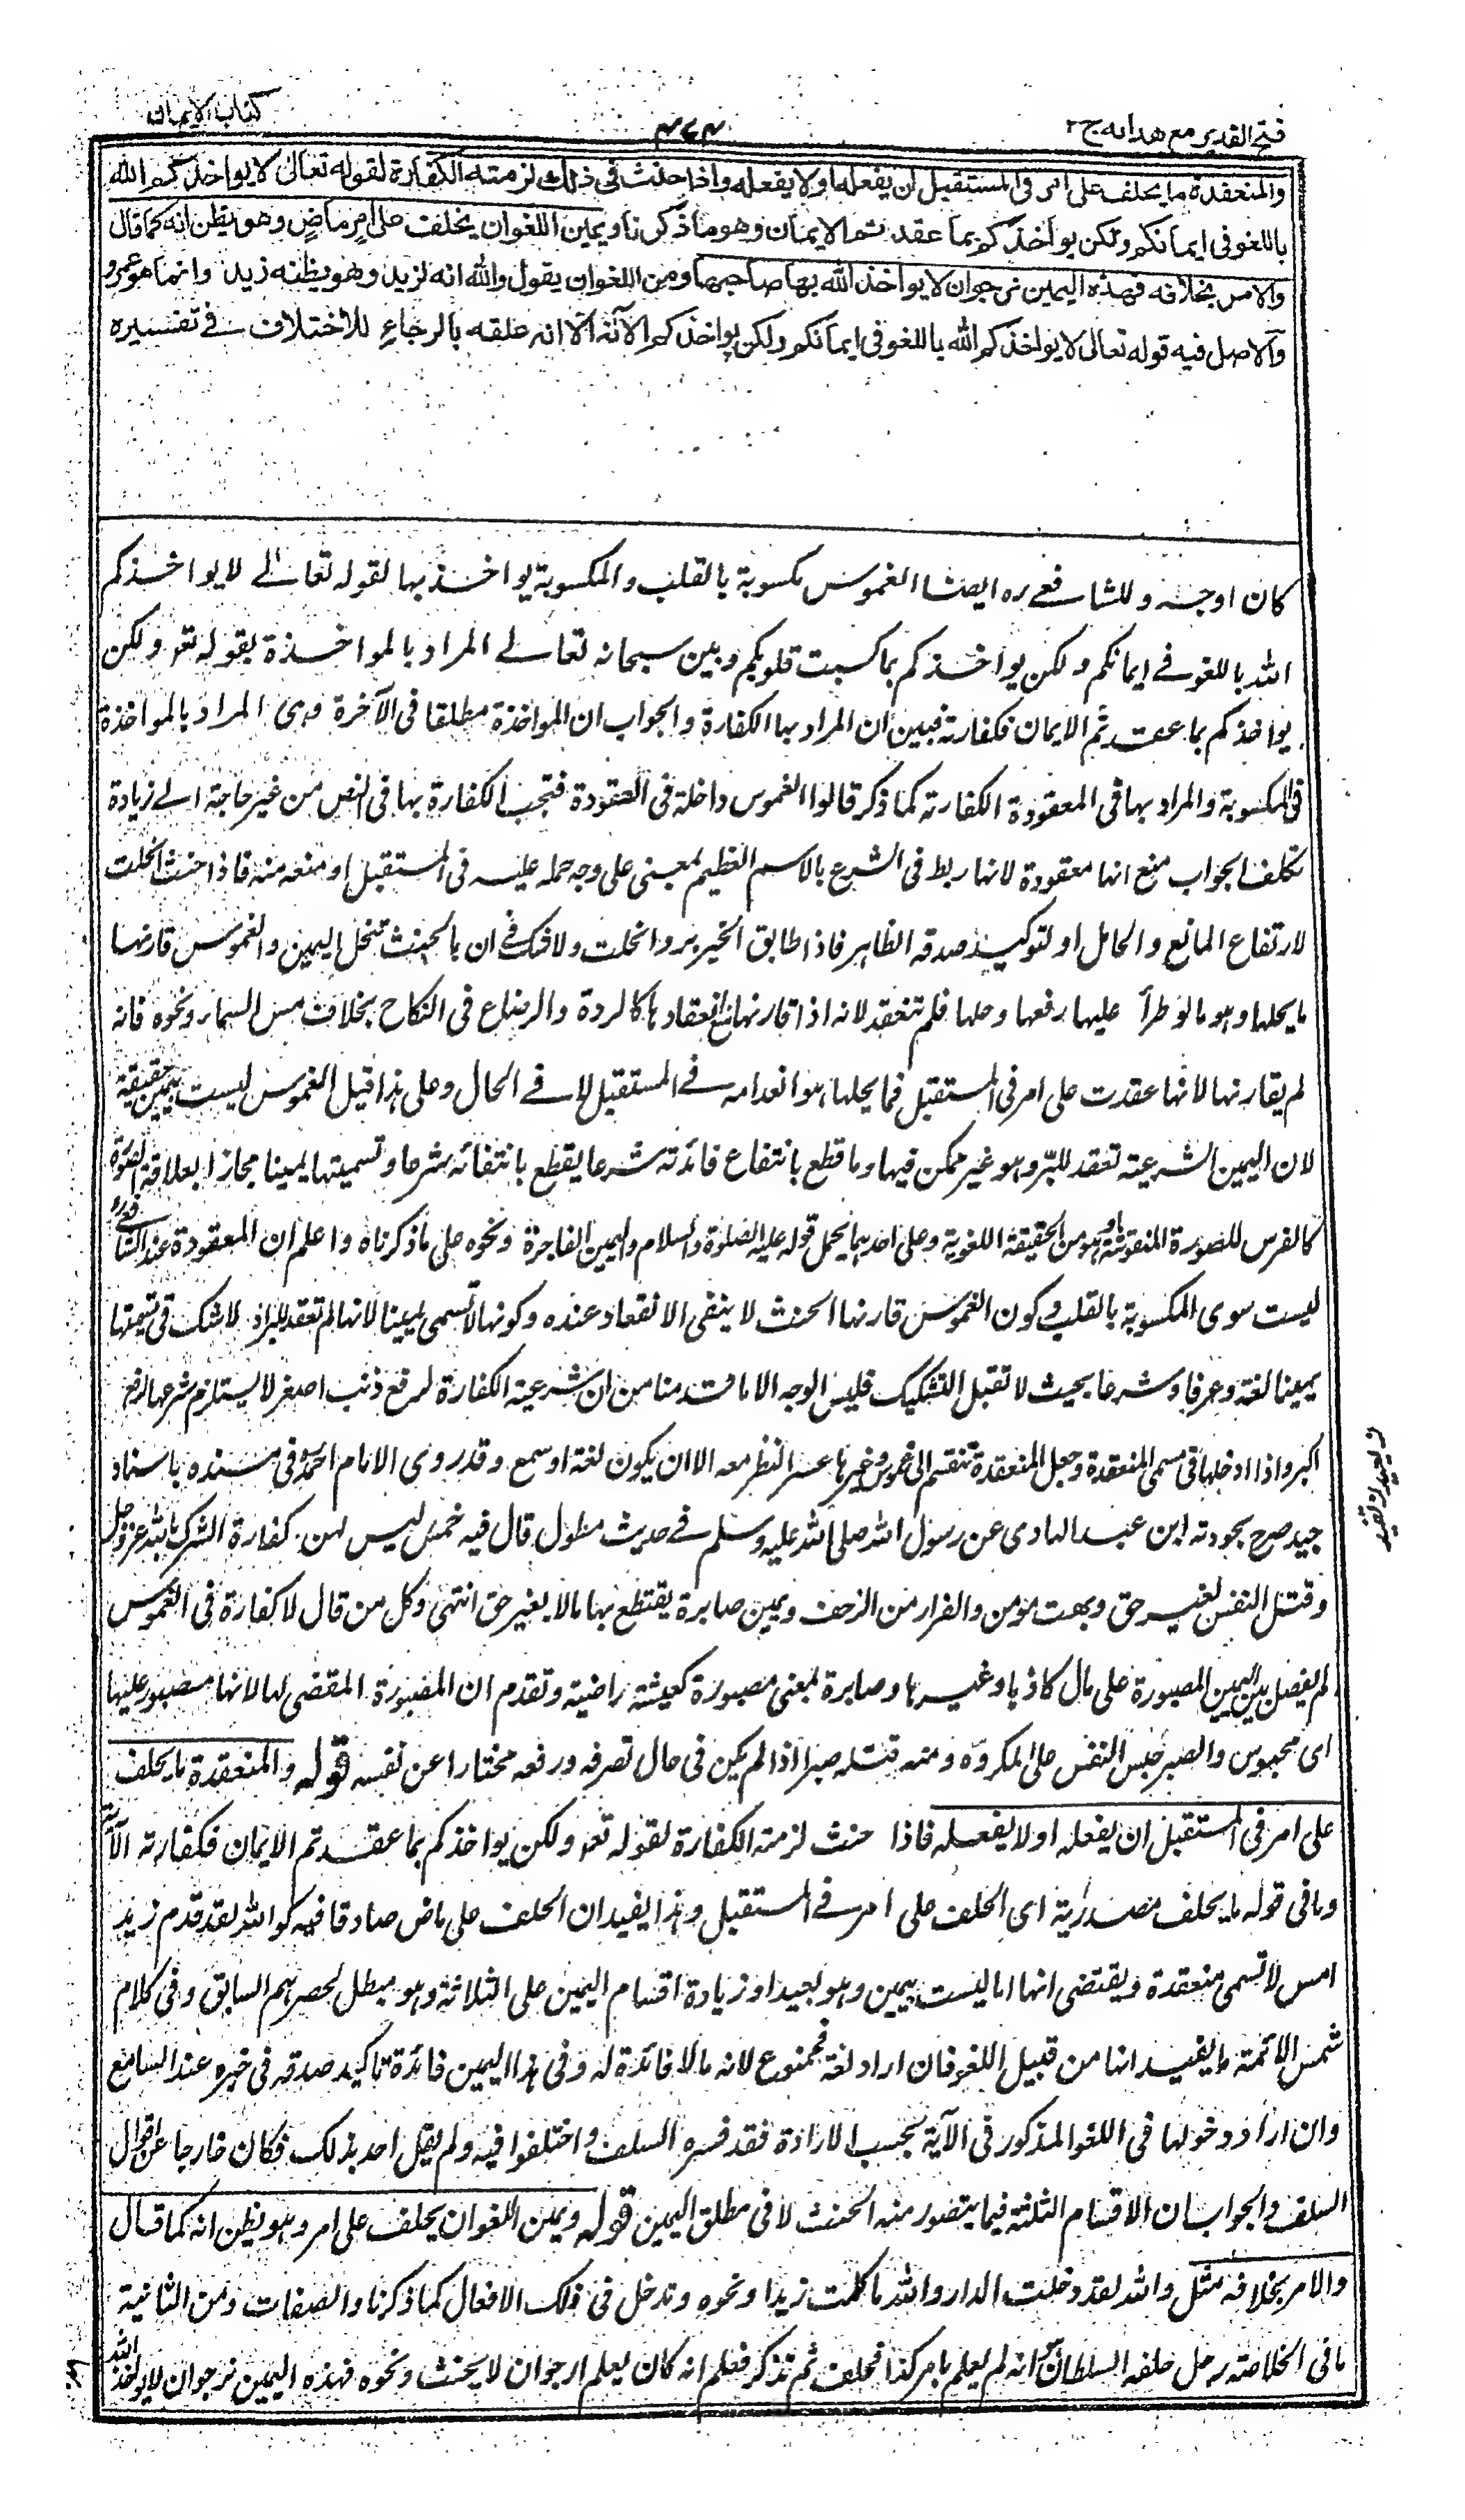 فتح القدير مع هدايه ج ٢
كتاب الايمان
والمنعقدة ما يحلف على امر في المستقبل ان يفعله او لا يفعله واذا حنث في ذلك لزمته الكفارة لقوله تعالى لا يواخذكم الله
باللغو في ايمانكم ولكن يواخذكم بما عقدتم الايمان وهو ما ذكرنا ويمين اللغو ان يحلف على امر ماض وهو يظن انه كما قال
والامر بخلافه فهذه اليمين نرجو ان لا يواخذ الله بها صاحبها ومن اللغو ان يقول والله انه لزيد وهو يظنه زيدا وانما هو عمرو
والاصل فيه قوله تعالى لا يواخذكم الله باللغو في ايمانكم ولكن يواخذكم الآية الا انه علقه بالرجاء للاختلاف في تفسيره
كان اوجه وللشافعي ره ايضا الغموس مكسوبة بالقلب والمكسوبة يواخذ بها لقوله تعالى لا يواخذكم
الله باللغو في ايمانكم ولكن يواخذكم بما كسبت قلوبكم وبين سبحانه تعالى المراد بالمواخذة بقوله تعم ولكن
يواخذكم بما عقدتم الايمان فكفارته فبين ان المراد بها الكفارة والجواب ان المواخذة مطلقا في الآخرة وهى المراد بالمواخذة
في المكسوبة والمراد بها في المعقودة الكفارته كما ذكر قالوا الغموس داخلة في العقودة فتجب الكفارة بها في النص من غير حاجة الى زيادة
تكلف الجواب منع انها معقودة لانها ربط في الشرع بالاسم العظيم لمعنى على وجه حمله عليه في المستقبل او منعه منه فاذا حنث انحلت
لارتفاع المانع والحامل او لتوكيد صدقه الظاهر فاذا طابق الخبر بر وانحلت ولا شك في ان بالحنث تنحل اليمين والغموس قارنها
ما يحلها وهو ما لو طرأ عليها رفعها وحلها فلم تنعقد لانه اذا قارنها منع انعقادها كالردة والرضاع في النكاح بخلاف مس السماء ونحوه فانه
لم يقارنها لانها عقدت على امر في المستقبل فما يحلها هو انعدامه في المستقبل لا في الحال وعلى هذا قيل الغموس ليست بيمين حقيقة
لان اليمين الشرعية تعقد للبر وهو غير ممكن فيها وما قطع بانتفاء فائدته شرعا يقطع بانتفائه شرعا وتسميتها يمينا مجازا بعلاقة الصورة
كالفرس للصورة المنقوشة او هو من الحقيقة اللغوية وعلى احدهما يحمل قوله عليه الصلوة والسلام واليمين الفاجرة ونحوه على ما ذكرناه واعلم ان المعقودة عند الشافعي ره
ليست سوى المكسوبة بالقلب وكون الغموس قارنها الحنث لا ينفى الانعقاد عنده وكونها لا تسمى يمينا لانها لم تعقد للبر اذ لا شك في تسميتها
يمينا لغة وعرفا وشرعا بحيث لا تقبل التشكيك فليس الوجه الا ما قدمنا من ان شرعية الكفارة لرفع ذنب اصغر لا يستلزم شرعها لرفع
اكبر واذا ادخلها في مسمى المنعقدة وجعل المنعقدة تنقسم الى غموس وغيرها عسر النظر معه الا ان يكون لغة او سمع وقد روى الامام احمد في مسنده باسناد
جيد صرح بجودته ابن عبد الهادى عن رسول الله صلى الله عليه وسلم في حديث مطول قال فيه خمس ليس لهن كفارة الشرك بالله عز وجل
وقتل النفس بغير حق وبهت مؤمن والفرار من الزحف ويمين صابرة يقتطع بها مالا بغير حق انتهى وكل من قال لا كفارة في الغموس
لم يفصل بين اليمين المصبورة على مال كاذبا وغيرها وصابرة بمعنى مصبورة كعيشة راضية وتقدم ان المصبورة المقضى لها لانها مصبور عليها
اى محبوس والصبر حبس النفس على المكروه ومنه قتله صبرا اذا لم يكن في حال تصرفه ورفعه مختارا عن نفسه قوله والمنعقدة ما يحلف
على امر في المستقبل ان يفعله او لا يفعله فاذا حنث لزمته الكفارة لقوله تعم ولكن يواخذكم بما عقدتم الايمان فكفارته الآية
وما في قوله ما يحلف مصدرية اى الحلف على امر في المستقبل وهذا يفيد ان الحلف على ماض صادقا فيه كوالله لقد قدم زيد
امس لا تسمى منعقدة ويقتضى انها اما ليست بيمين وهو بعيد او زيادة اقسام اليمين على الثلاثة وهو مبطل لحصرهم السابق وفى كلام
شمس الائمة ما يفيد انها من قبيل اللغو فان اراد لغة فممنوع لانه ما لا فائدة له وفى هذا اليمين فائدة تاكيد صدقه في خبره عند السامع
وان اراد دخولها في اللغو المذكور في الآية بحسب الارادة فقد فسره السلف واختلفوا فيه ولم يقل احد بذلك فكان خارجا عن اقوال
السلف والجواب ان الاقسام الثلثة فيما يتصور منه الحنث لا في مطلق اليمين قوله ويمين اللغو ان يحلف على امر وهو يظن انه كما قال
والامر بخلافه مثل والله لقد دخلت الدار والله ما كلمت زيدا ونحوه وتدخل في ذلك الافعال كما ذكرنا والصفات ومن الثانية
ما في الخلاصة رجل حلفه السلطان انه لم يعلم بامر كذا فحلف ثم تذكر فعلم انه كان يعلم ارجو ان لا يحنث ونحوه فهذه اليمين نرجو ان لا يواخذ الله